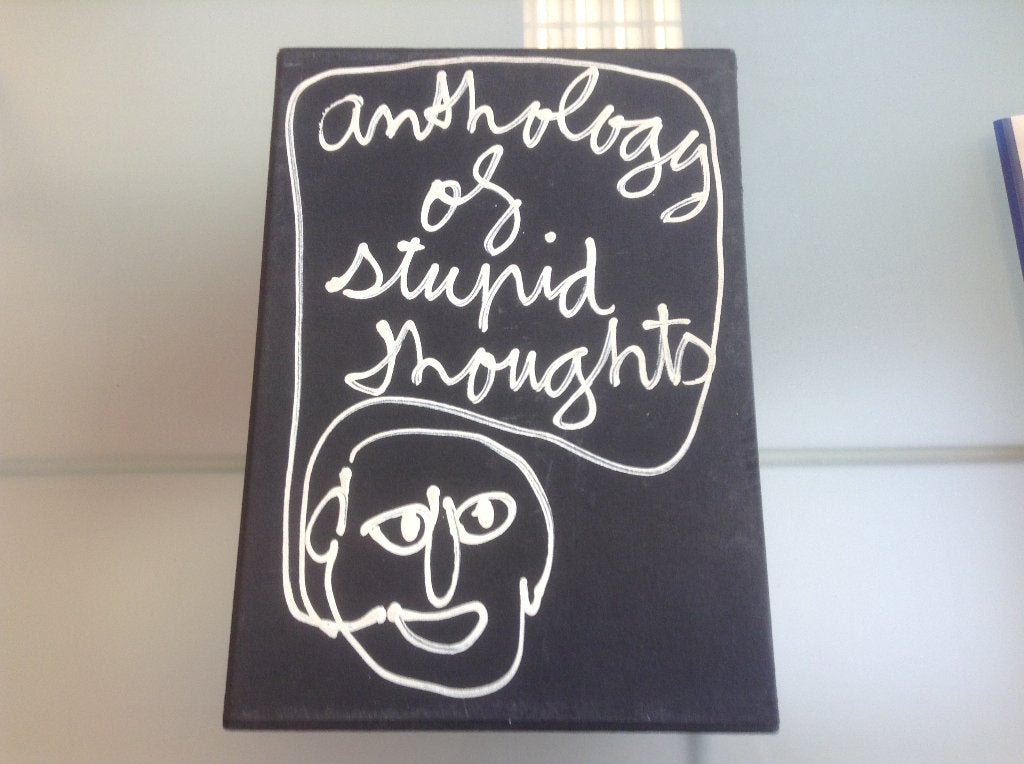 anthology
of
stupid
thoughts